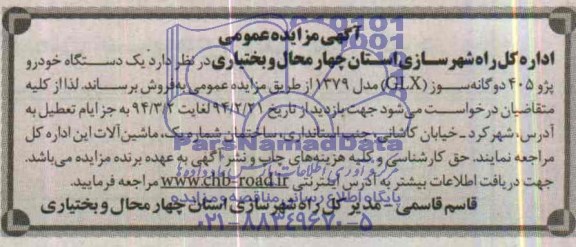 آگهی مزایده عمومی
اداره کل راه شهرسازی استان چهارمحال و بختیاری در نظر دارد یک دستگاه خودرو
پژو ۴۰۵ دوگانه سوز (GLX) مدل ۱۳۷۹ از طریق مزایده عمومی به فروش برساند. لذا از کلیه
متقاضیان درخواست می شود جهت بازدید از تاریخ ۹۴/۲/۳۱ لغایت ۹۴/۳/۲ به جز ایام تعطیل به
آدرس، شهرکرد - خیابان کاشانی، جنب استانداری، ساختمان شماره یک، ماشین آلات این اداره کل
مراجعه نمایند. حق کارشناسی و کلیه هزینه های چاپ و نشر آگهی به عهده برنده مزایده می باشد.
جهت دریافت اطلاعات بیشتر به آدرس اینترنتی www.chb-road.ir مراجعه فرمایید.
قاسم قاسمی - مدیر کل راه شهرسازی استان چهارمحال و بختیاری
ParsNamadData
پایگاه اطلاع رسانی مناقصه و مزایده
۰۲۱-۸۸۳۴۹۶۷۰-۵